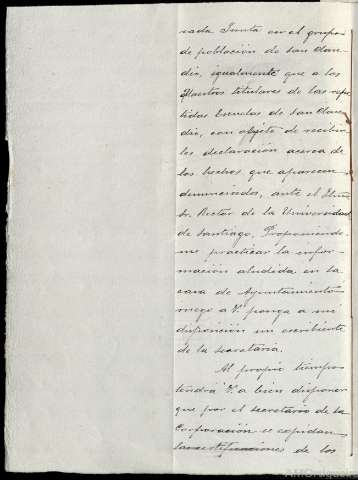 nada Junta en el grupo
de población de San Clau-
dio, igualmente que a los
Maestros titulares de las repe-
tidas Escuelas de San Clau-
dio, con objeto de recibir-
les declaración acerca de
los hechos que aparecen
denunciados, ante el Iltmo
Sr. Rector de la Universidad
de Santiago. Proponiendo-
me practicar la infor-
mación aludida en la
casa de Ayuntamiento
ruego a V. ponga a mi
disposición un escribiente
de la secretaría.
Al propio tiempo
tendrá V. a bien disponer
que por el secretario de la
Corporación se expidan
las certificaciones de los